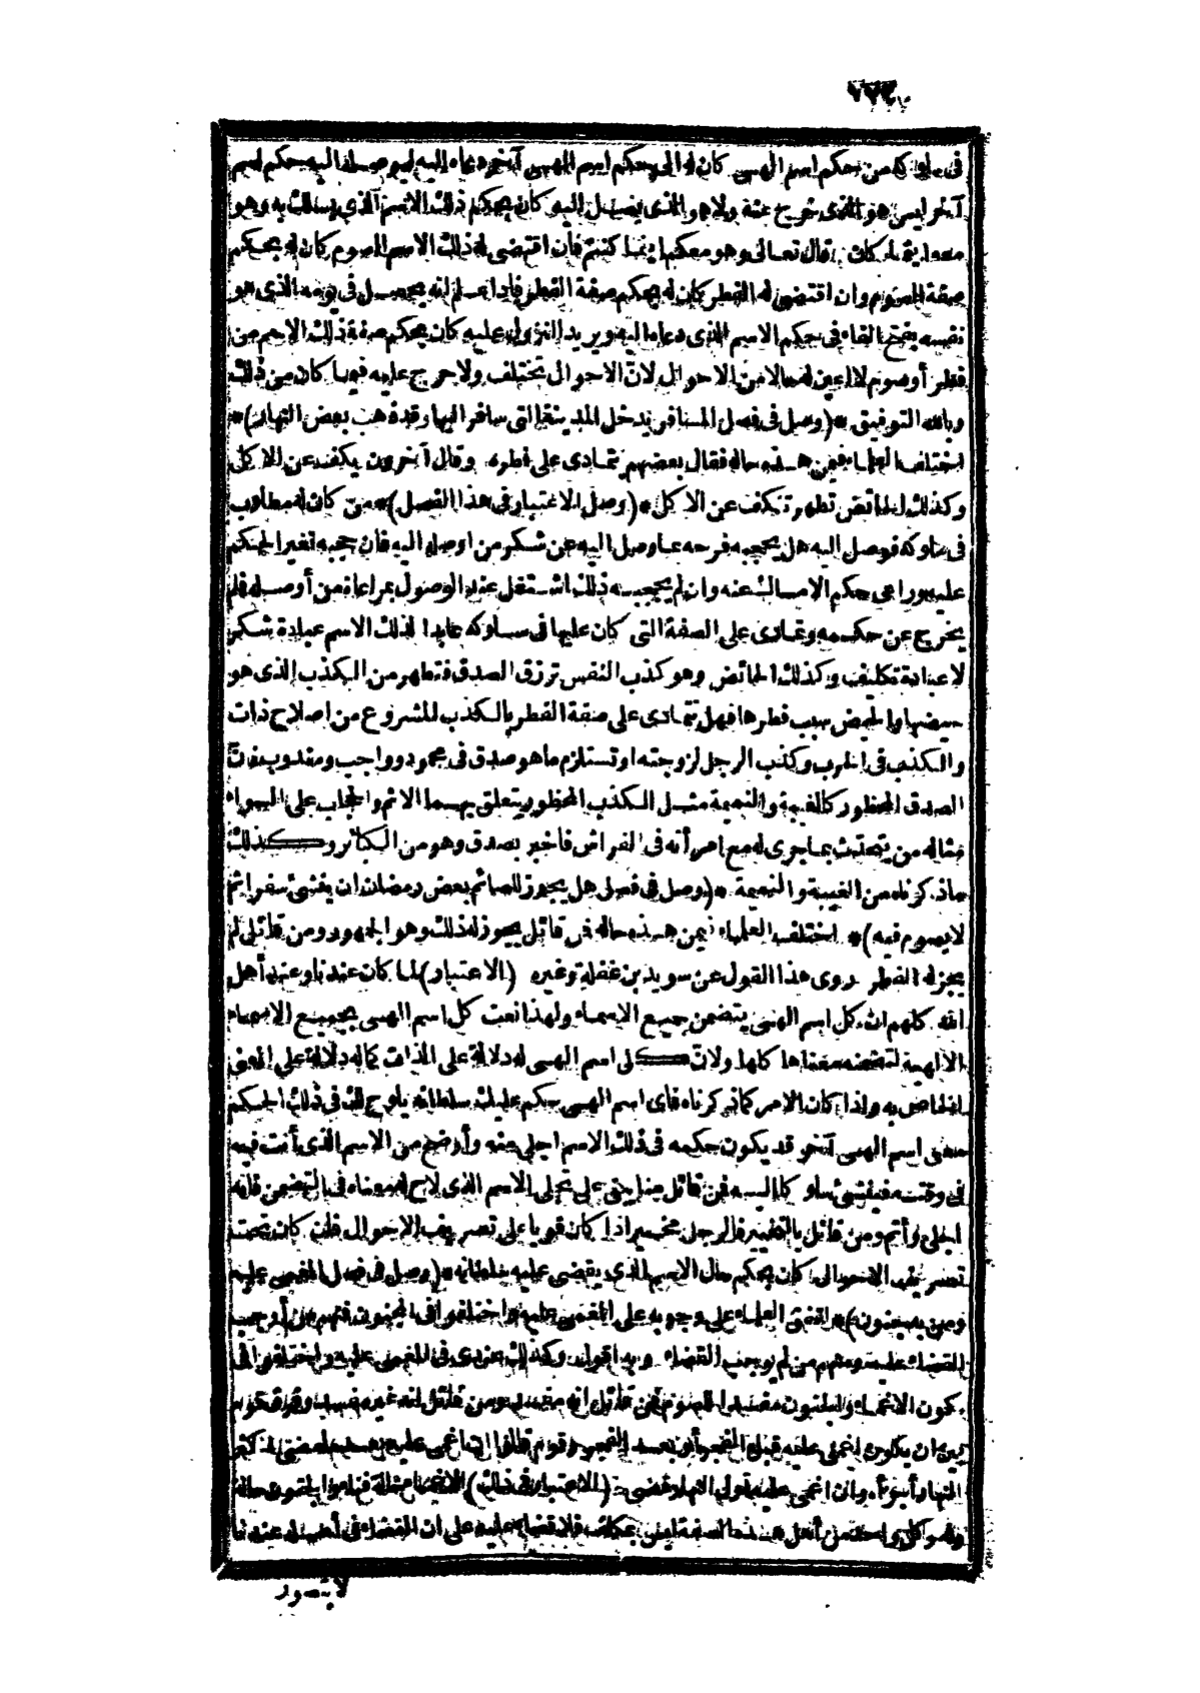 فى سلوكه من حكم اسم الهى كان له الى حكم اسم الهى آخر دعاه اليه ليوصله اليه حكم اسم
آخر ليس هو الذى خرج عنه ولا هو الذى يصل اليه كان بحكم ذلك الاسم الذى يسلك به وهو
معه اينما كان قال تعالى وهو معكم اينما كنتم فان اقتضى له ذلك الاسم الصوم كان له بحكم
صفة الصوم وان اقتضى له الفطر كان له بحكم صفة الفطر فاذا علم انه يحصل فى يومه الذى هو
نفسه بفتح الفاء فى حكم الاسم الذى دعاه اليه ويريد النزول عليه كان بحكم صفة ذلك الاسم من
فطر أو صوم لا أعين له حالا من الاحوال لان الاحوال تختلف ولا حرج عليه فيما كان من ذلك
وبالله التوفيق *(وصل فى فصل المسافر يدخل المدينة التى سافر اليها وقد ذهب بعض النهار)*
اختلف العلماء فيمن هذه حاله فقال بعضهم يتمادى على فطره وقال آخرون يكف عن الاكل
وكذلك الحائض تطهر تكف عن الاكل *(وصل الاعتبار فى هذا الفصل)* من كان له مطلوب
فى سلوكه فوصل اليه هل يحجبه فرحه بما وصل اليه عن شكر من اوصله اليه فان حجبه تغير الحكم
عليه وراعى حكم الامساك عنه وان لم يحجبه ذلك اشتغل عند الوصول بمراعاة من أوصله فلم
يخرج عن حكمه وتمادى على الصفة التى كان عليها فى سلوكه عابدا لذلك الاسم عبادة شكر
لا عبادة تكليف وكذلك الحائض وهو كذب النفس ترزق الصدق فتطهر من الكذب الذى هو
حيضها والحيض سبب فطرها فهل تتمادى على صفة الفطر بالكذب المشروع من اصلاح ذات
والكذب فى الحرب وكذب الرجل لزوجته او تستلزم ما هو صدق فى محمود وواجب ومندوب فان
الصدق المحظور كالغيبة والنميمة مثل الكذب المحظور يتعلق بهما الاثم والحجاب على السواء
مثاله من يتحدث بما جرى له مع امرأته فى الفراش فاخبر بصدق وهو من الكبائر وكذلك
ما ذكرناه من الغيبة والنميمة *(وصل فى فصل هل يجوز للصائم بعض رمضان ان ينشئ سفرا ثم
لا يصوم فيه)* اختلف العلماء فيمن هذه حاله فمن قائل يجوز له ذلك وهو الجمهور ومن قائل لم
يجز له الفطر روى هذا القول عن سويد بن غفلة وغيره (الاعتبار) لما كان عندنا وعند أهل
الله كلهم ان كل اسم الهى يتضمن جميع الاسماء ولهذا نعت كل اسم الهى بجميع الاسماء
الالهية لتضمنه معناها كلها ولان كل اسم الهى له دلالة على الذات كما له دلالة على المعنى
الخاص به واذا كان الامر كما ذكرناه فاى اسم الهى حكم عليك سلطانه يلوح لك فى ذلك الحكم
معنى اسم الهى آخر قد يكون حكمه فى ذلك الاسم اجلى منه وأوضح من الاسم الذى أنت فيه
فى وقتك فينشئ سلوكا اليه فمن قائل منا يبقى على تجلى الاسم الذى لاح له معناه فى التضمن فانه
اجلى وأتم ومن قائل بالتخيير فالرجل مخير اذا كان قويا على تصريف الاحوال فان كان تحت
تصريف الاحوال كان بحكم حال الاسم الذى يقضى عليه سلطانه *(وصل فى فصل المغمى عليه
ومن به جنون)* اتفق العلماء على وجوبه على المغمى عليه واختلفوا فى المجنون فمنهم من أوجب
القضاء عليه ومنهم من لم يوجب القضاء وبه اقول وكذلك عندى فى المغمى عليه واختلفوا فى
كون الاغماء والجنون مفسدا للصوم فمن قائل انه مفسد ومن قائل انه غير مفسد وفرق قوم
بين ان يكون اغمى عليه قبل الفجر أو بعد الفجر وقوم قالوا ان اغمى عليه بعد ما مضى اكثر
النهار أجزأه وان اغمى عليه أول النهار قضى (الاعتبار فى ذلك) الاغماء حالة فناء والجنون حالة
وله وكل واحد من أهل هذه الصفة ليس بمكلف فلا قضاء عليه على ان القضاء فى أصله عندنا
لا يتصور